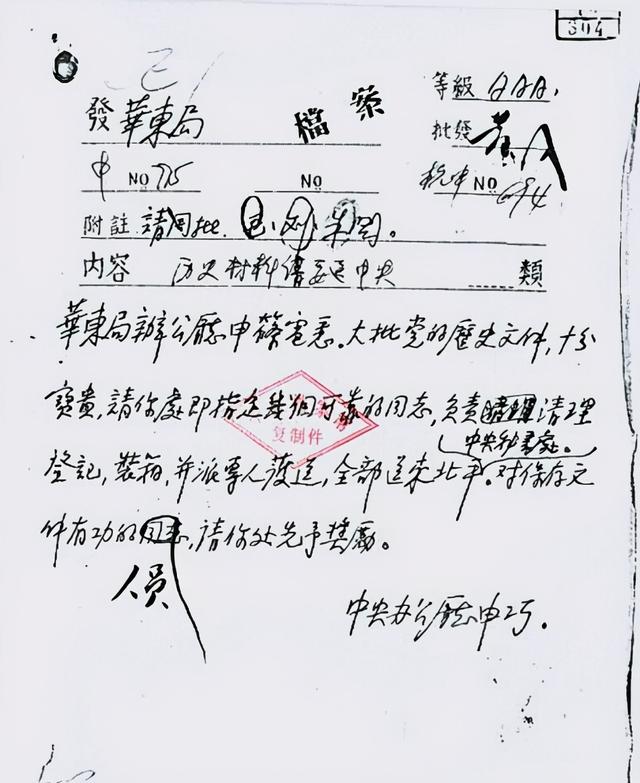 304
等級 AAA.
發 華東局 檔案 批發
申 NO 775 NO NO 694
附註 請周批. 毛、刘、朱、周。
内容 历史材料 中央 類
華東局辦公廳申篠電悉。大批党的歷史文件,十分
寶貴,請你處即指定幾個可靠的同志,負责 清理
中央秘書处。
登記,裝箱,并派專人護送,全部送来北平。对保存文
件有功的同志,請你处先予獎勵。
人员
中央办公廳申巧.
复制件